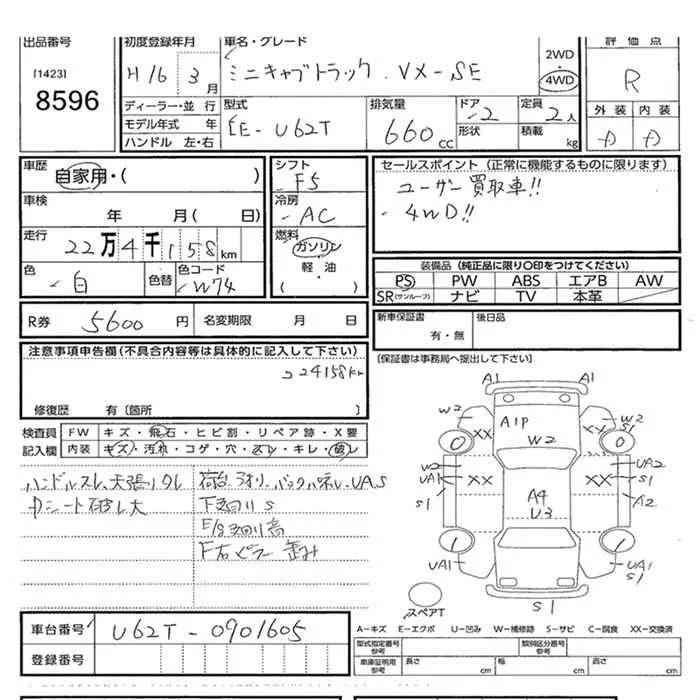 出品番号 初度登録年月 車名・グレード 評価点
[1423] H16 3月 ミニキャブトラック VX-SE 2WD 4WD R
8596 ディーラー・並行 型式 排気量 ドア 定員 外装 内装
モデル年式 年 GBD-U62T 660cc 2 2人
ハンドル 左・右 形状 積載 kg
車歴 シフト セールスポイント (正常に機能するものに限ります)
自家用・( ) F5 ユーザー買取車!!
車検 冷房 4WD!!
年 月(日) AC
走行 燃料
22万4千158km ガソリン
色 色替 色コード 軽・油 装備品 (純正品に限り○印をつけてください)
白 W74 ・( ) PS PW ABS エアB AW
SR(サンルーフ) ナビ TV 本革
R券 5600円 名変期限 月 日 新車保証書 後日品
有・無
注意事項申告欄(不具合内容等は具体的に記入して下さい) [保証書は事務局へ提出して下さい]
224158km
修復歴 有〔箇所 〕
検査員 FW キズ・飛石・ヒビ割・リペア跡・X要
記入欄 内装 キズ・汚れ・コゲ・穴・スレ・キレ・破レ
ハンドルスレ、天張りクレ 荷台、アオリ、バックパネル UAS
中シート破レ大 下回りS
E/g回り高
F右ピラー歪み
A1 A1
W2 A1P W2
XX W2 XX
W2 UA2
UA1 XX XX
S1 A4 U3 S1 A2
UA1 UA1 S1
スペアT S1
車台番号 U62T-0901605 A-キズ E-エクボ U-凹み W-補修跡 S-サビ C-腐食 XX-交換済
登録番号 型式指定番号参考 類別区分番号参考
車庫証明用参考 長さ cm 幅 cm 高さ cm